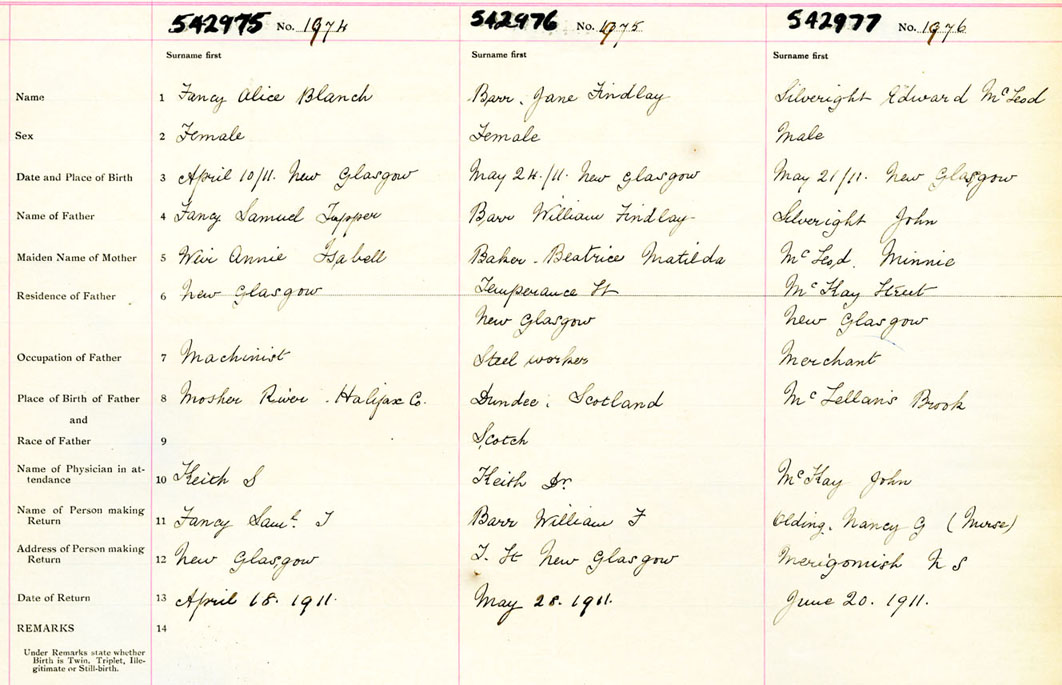 542975 No. 1974 542976 No. 1975 542977 No. 1976
Surname first Surname first Surname first
Name 1 Fancy Alice Blanch Barr, Jane Findlay Silveright Edward McLeod
Sex 2 Female Female Male
Date and Place of Birth 3 April 10/11. New Glasgow May 24/11. New Glasgow May 21/11. New Glasgow
Name of Father 4 Fancy Samuel Tupper Barr William Findlay Silveright John
Maiden Name of Mother 5 Weir Annie Isabell Baker - Beatrice Matilda McLeod, Minnie
Residence of Father 6 New Glasgow Temperance St McKay Street
New Glasgow New Glasgow
Occupation of Father 7 Machinist Steel worker Merchant
Place of Birth of Father 8 Mosher River - Halifax Co. Dundee, Scotland McLellans Brook
and
Race of Father 9 Scotch
Name of Physician in at-
tendance 10 Keith S Keith Dr. McKay John
Name of Person making
Return 11 Fancy Saml. T Barr William F Olding, Nancy G (Nurse)
Address of Person making
Return 12 New Glasgow T. St New Glasgow Merigomish N S
Date of Return 13 April 18. 1911. May 28. 1911. June 20. 1911.
REMARKS 14
Under Remarks state whether
Birth is Twin, Triplet, Ille-
gitimate or Still-birth.